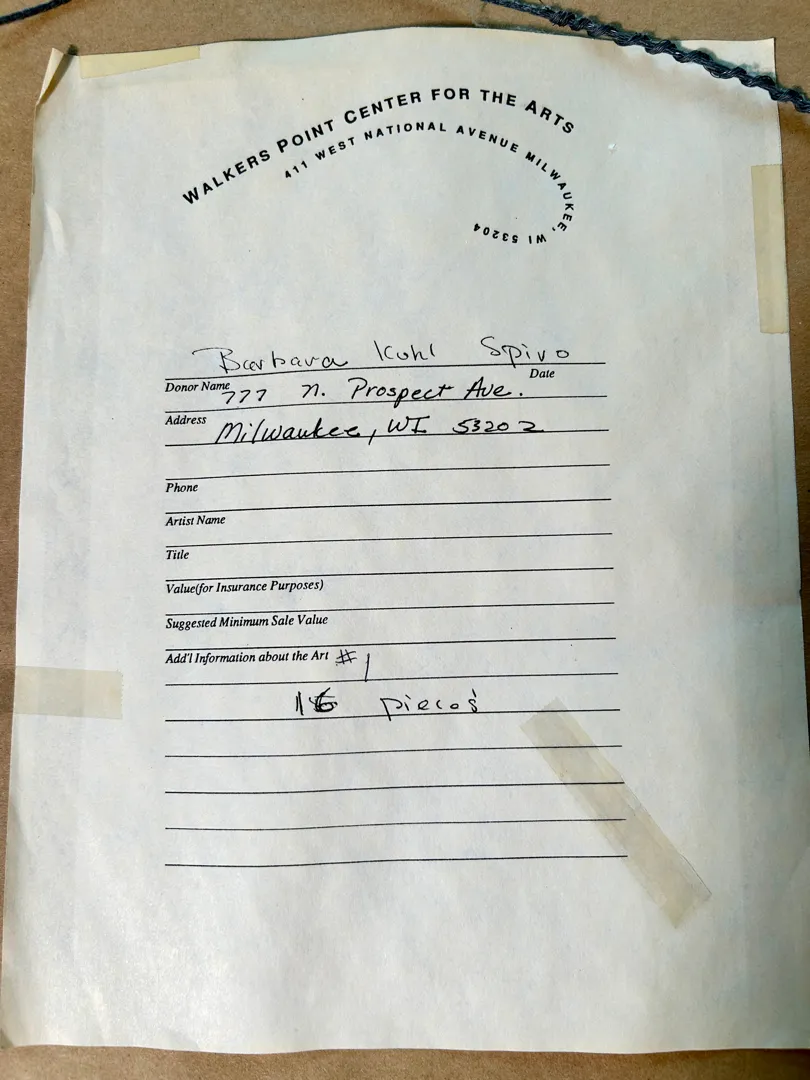 WALKERS POINT CENTER FOR THE ARTS
411 WEST NATIONAL AVENUE MILWAUKEE, WI 53204
Barbara Kohl Spivo
Donor Name
Date
777 N. Prospect Ave.
Address
Milwaukee, WI 53202
Phone
Artist Name
Title
Value(for Insurance Purposes)
Suggested Minimum Sale Value
Add'l Information about the Art #1
16 pieces